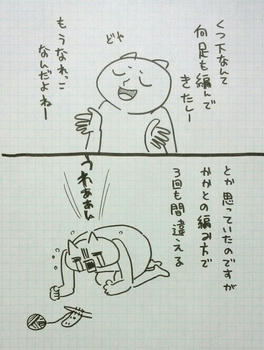 くつ下なんて
何足も編んで
きたしー
どや
もうなれっこ
なんだよねー
とか思っていたのですが
かかとの編み方で
3回も間違える
うわぁぁん